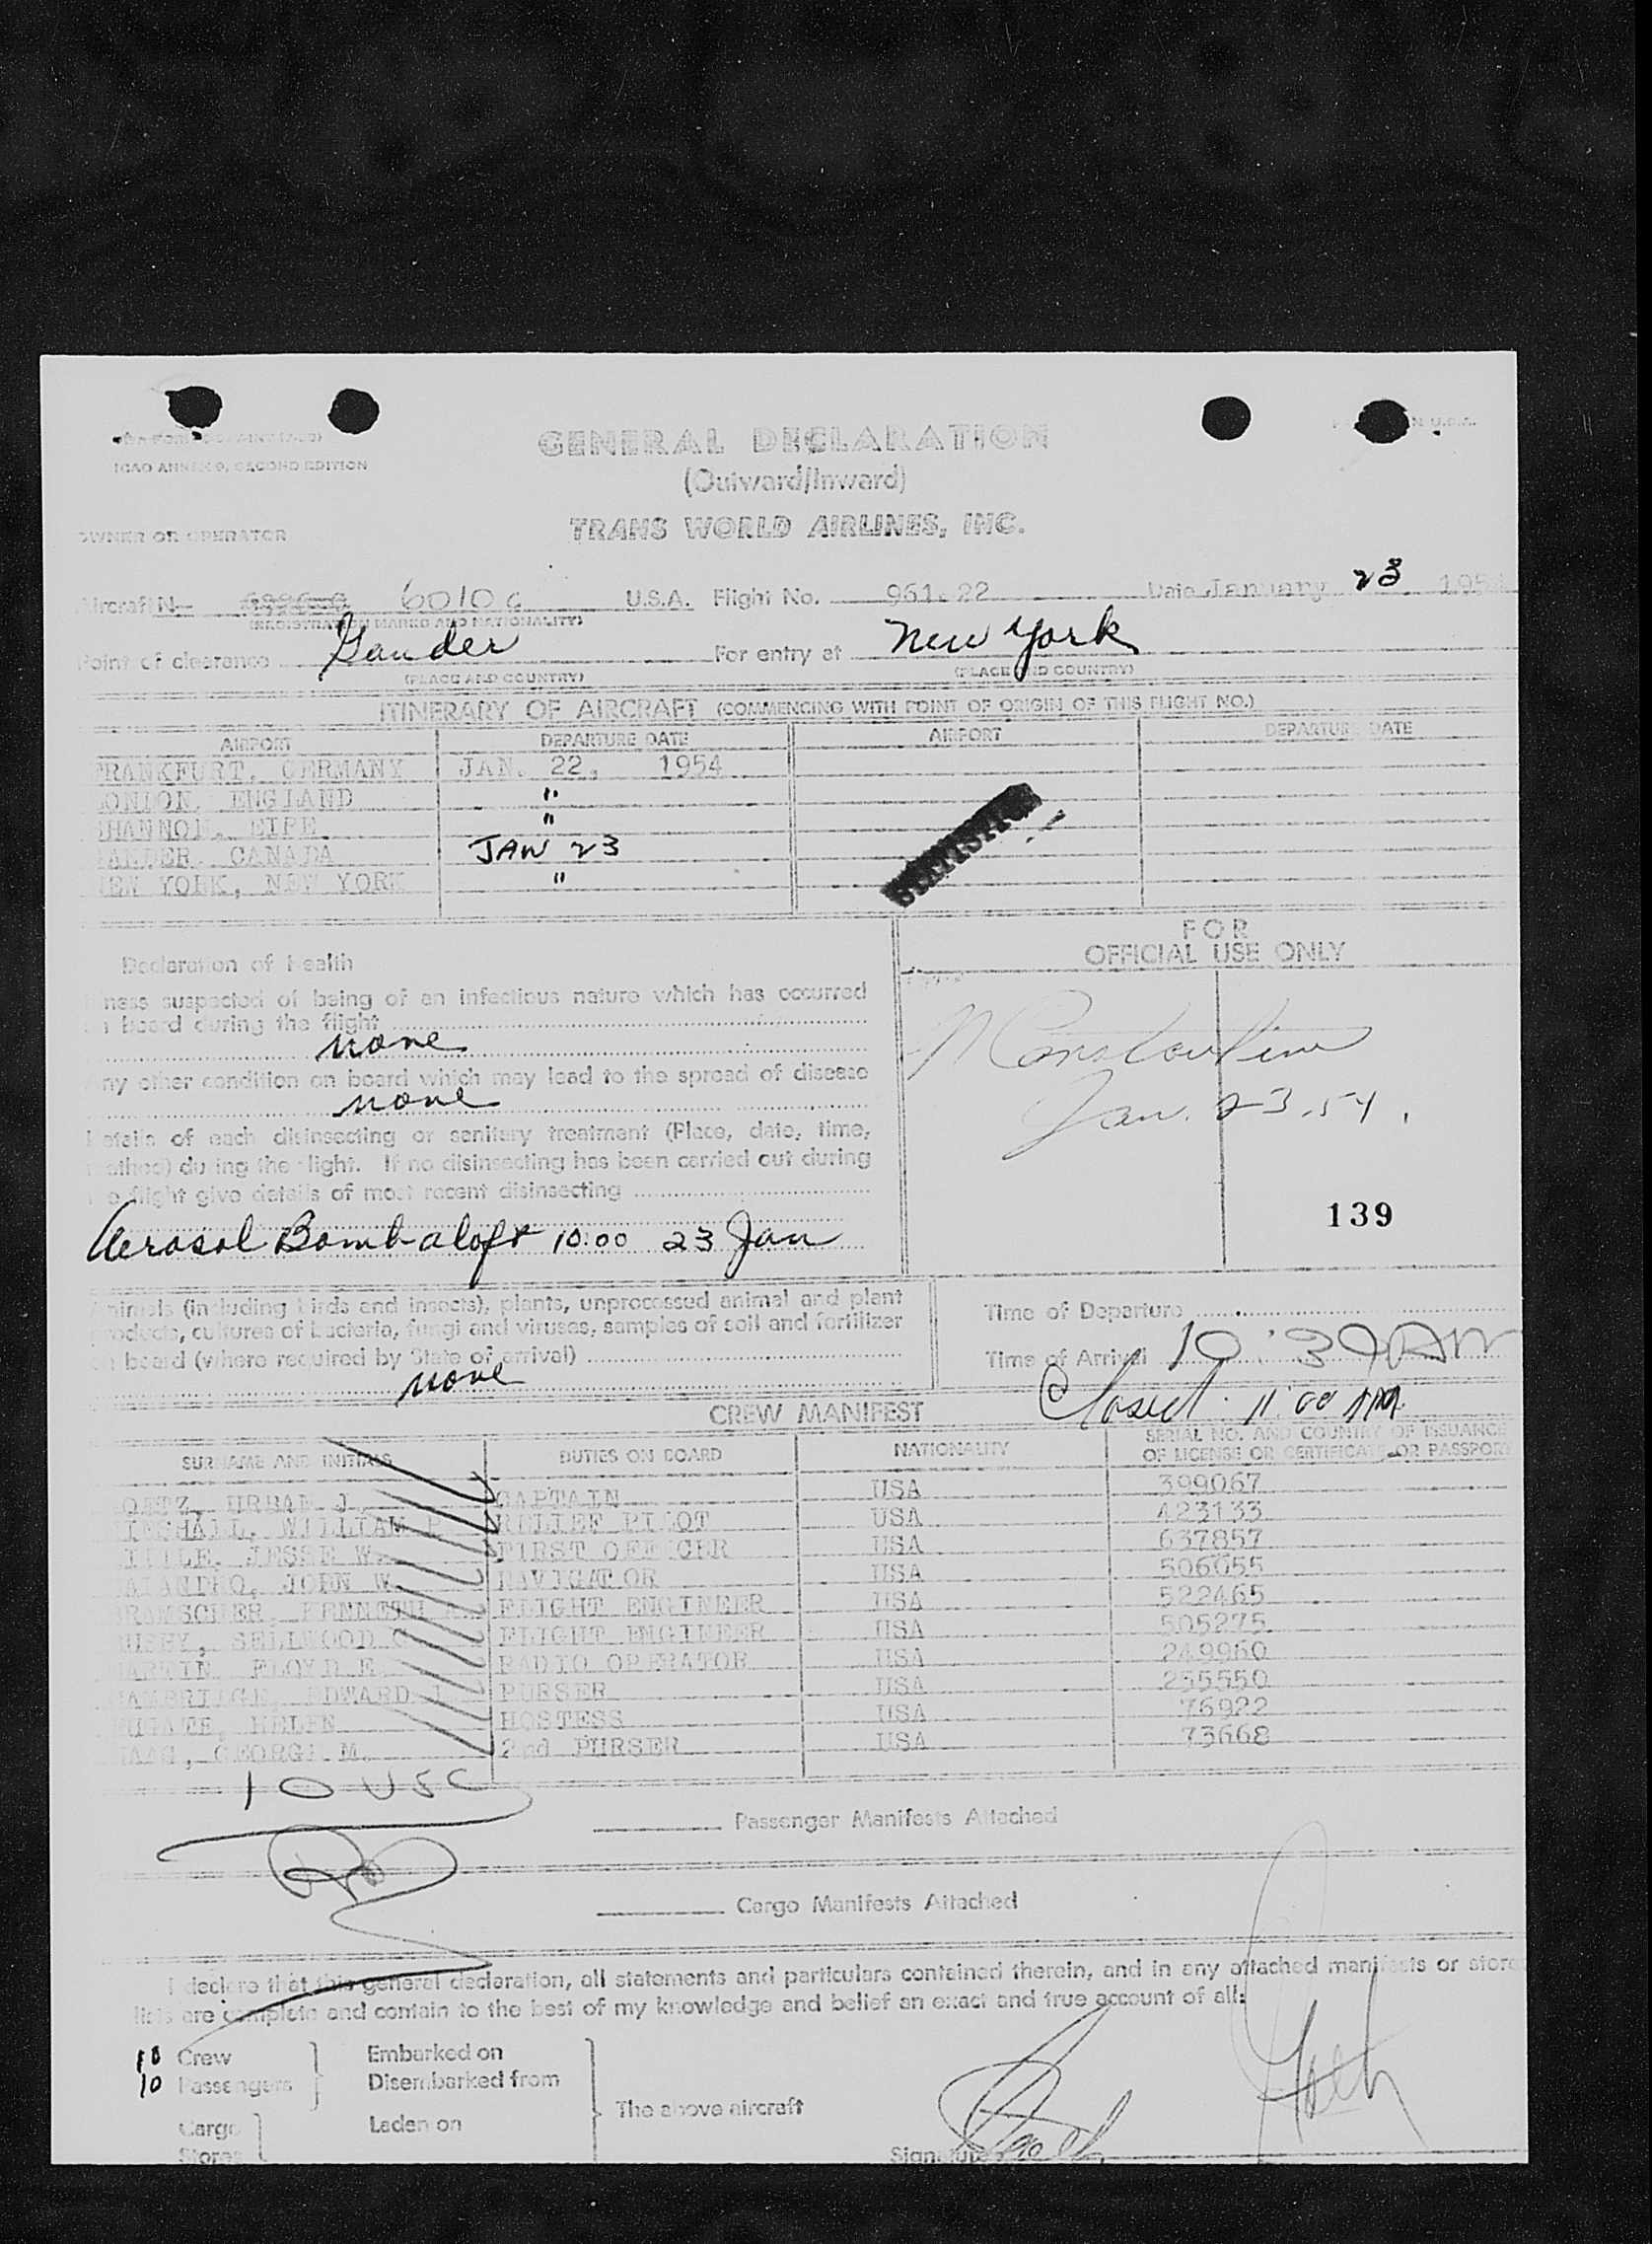 ICAO ANNEX 9, SECOND EDITION
GENERAL DECLARATION
(Outward/Inward)
OWNER OR OPERATOR
TRANS WORLD AIRLINES, INC.
Aircraft N 6010 C U.S.A. Flight No. 961-22 Date January 23 195
(REGISTRATION MARKS AND NATIONALITY)
Point of clearance Gander For entry at New York
(PLACE AND COUNTRY) (PLACE AND COUNTRY)
ITINERARY OF AIRCRAFT (COMMENCING WITH POINT OF ORIGIN OF THIS FLIGHT NO.)
AIRPORT DEPARTURE DATE AIRPORT DEPARTURE DATE
FRANKFURT, GERMANY JAN. 22, 1954
LONDON, ENGLAND "
SHANNON, EIRE "
GANDER, CANADA JAN 23
NEW YORK, NEW YORK "
FOR
OFFICIAL USE ONLY
Declaration of Health
Illness suspected of being of an infectious nature which has occurred
on board during the flight
none
Any other condition on board which may lead to the spread of disease
none
Details of each disinsecting or sanitary treatment (Place, date, time,
method) during the flight. If no disinsecting has been carried out during
the flight give details of most recent disinsecting
Aerosol Bomb aloft 10:00 23 Jan
Jan. 23.54.
139
Animals (including birds and insects), plants, unprocessed animal and plant
products, cultures of bacteria, fungi and viruses, samples of soil and fertilizer
on board (where required by State of arrival)
none
Time of Departure
Time of Arrival 10:39 AM
Closed 11:00 AM
CREW MANIFEST
SURNAME AND INITIALS DUTIES ON BOARD NATIONALITY SERIAL NO. AND COUNTRY OF ISSUANCE
OF LICENSE OR CERTIFICATE OR PASSPORT
URBAN J. CAPTAIN USA 399067
WILLIAM RELIEF PILOT USA 423133
JESSE W. FIRST OFFICER USA 637857
JOHN W. NAVIGATOR USA 506055
KENNETH FLIGHT ENGINEER USA 522465
SELLWOOD FLIGHT ENGINEER USA 505275
MARTIN FLOYD E. RADIO OPERATOR USA 249960
EDWARD PURSER USA 255550
HELEN HOSTESS USA 76922
GEORGE M. 2nd PURSER USA 73668
10 USC
Passenger Manifests Attached
Cargo Manifests Attached
I declare that this general declaration, all statements and particulars contained therein, and in any attached manifests or stores
lists are complete and contain to the best of my knowledge and belief an exact and true account of all:
10 Crew Embarked on
10 Passengers Disembarked from
The above aircraft
Cargo Laden on
Stores
Signature